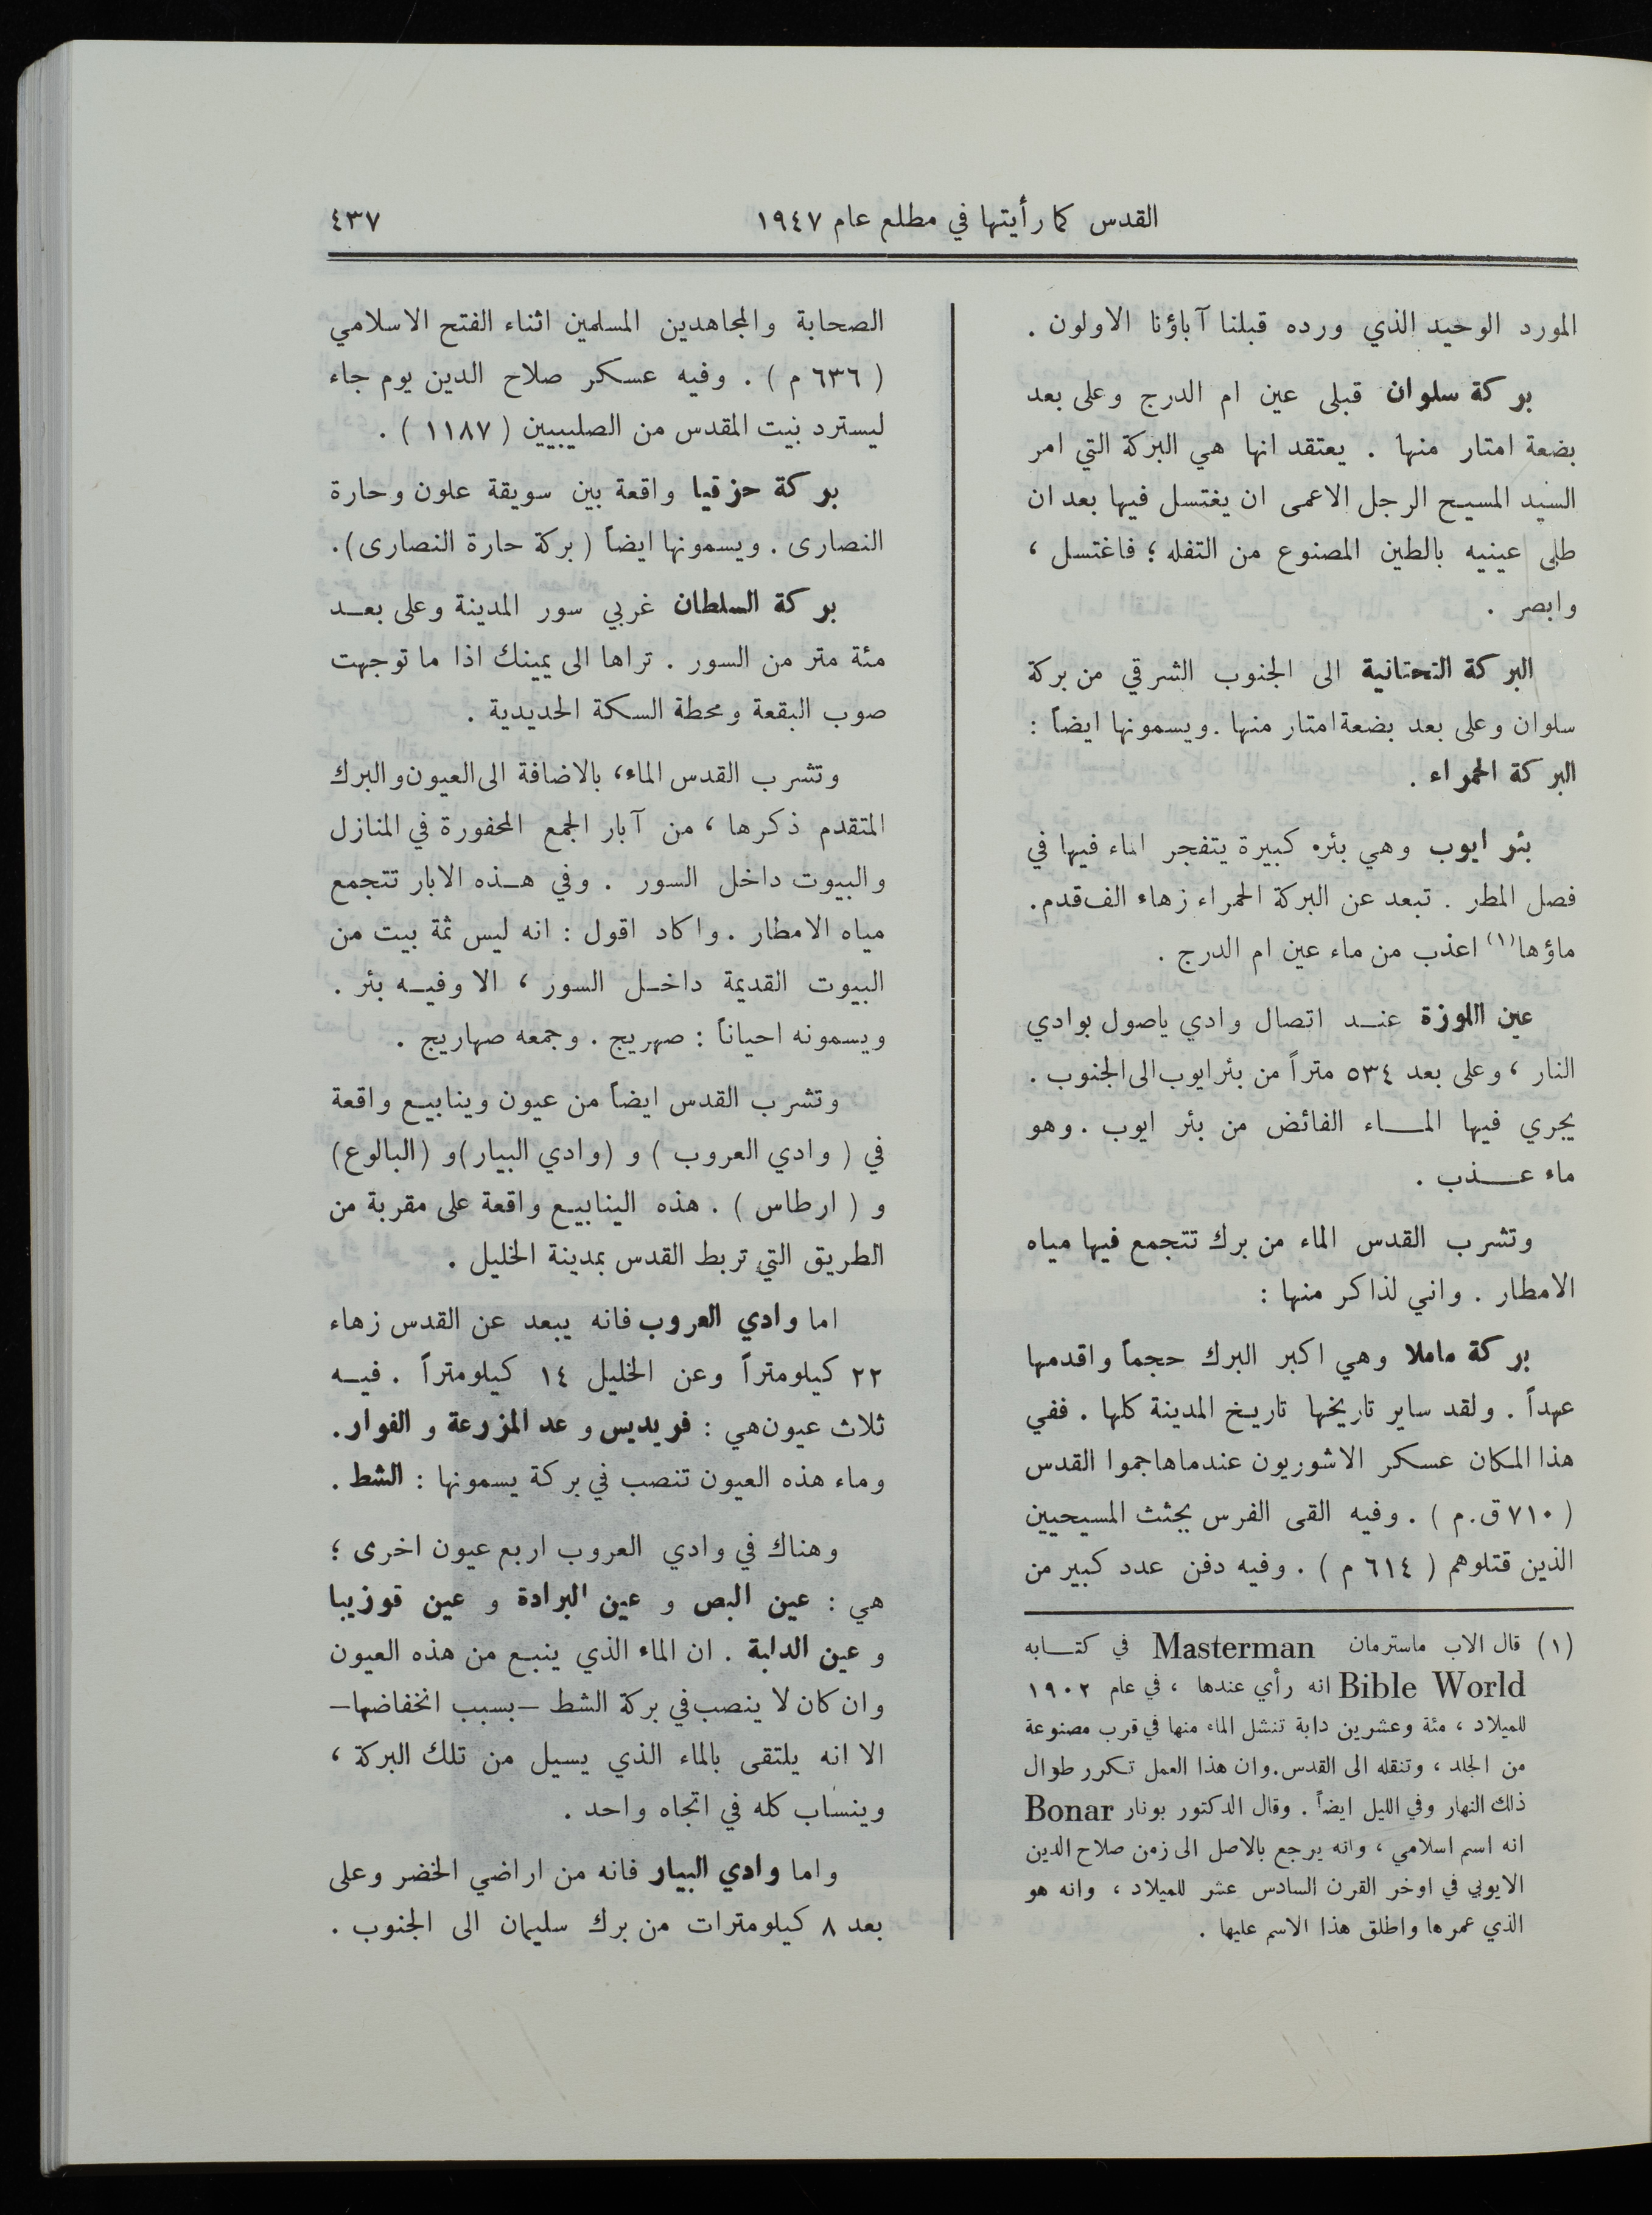 القدس كما رأيتها في مطلع عام ١٩٤٧
٤٣٧
المورد الوحيد الذي ورده قبلنا آباؤنا الاولون .
بركة سلوان قبلى عين ام الدرج وعلى بعد
بضعة امتار منها . يعتقد انها هي البركة التي امر
السيد المسيح الرجل الاعمى ان يغتسل فيها بعد ان
طلى عينيه بالطين المصنوع من التفله ؛ فاغتسل ،
وابصر .
البركة التحتانية الى الجنوب الشرقي من بركة
سلوان وعلى بعد بضعة امتار منها . ويسمونها ايضاً :
البركة الحمراء .
بئر ايوب وهي بئر كبيرة يتفجر الماء فيها في
فصل المطر . تبعد عن البركة الحمراء زهاء الف قدم .
ماؤها (١) اعذب من ماء عين ام الدرج .
عين اللوزة عند اتصال وادي ياصول بوادي
النار ، وعلى بعد ٥٣٤ متراً من بئر ايوب الى الجنوب .
يجري فيها الماء الفائض من بئر ايوب . وهو
ماء عذب .
وتشرب القدس الماء من برك تتجمع فيها مياه
الامطار . واني لذاكر منها :
بركة ماملا وهي اكبر البرك حجماً واقدمها
عهداً . ولقد ساير تاريخها تاريخ المدينة كلها . ففي
هذا المكان عسكر الاشوريون عندما هاجموا القدس
( ٧١٠ ق . م ) . وفيه القى الفرس بجثث المسيحيين
الذين قتلوهم ( ٦١٤ م ) . وفيه دفن عدد كبير من
(١) قال الاب ماسترمان Masterman في كتابه
Bible World انه رأي عندها ، في عام ١٩٠٢
للميلاد ، مئة وعشرين دابة تنشل الماء منها في قرب مصنوعة
من الجلد ، وتنقله الى القدس . وان هذا العمل تكرر طوال
ذلك النهار وفي الليل ايضاً . وقال الدكتور بونار Bonar
انه اسم اسلامي ، وانه يرجع بالاصل الى زمن صلاح الدين
الايوبي في اوخر القرن السادس عشر للميلاد ، وانه هو
الذي عمرها واطلق هذا الاسم عليها .
الصحابة والمجاهدين المسلمين اثناء الفتح الاسلامي
( ٦٣٦ م ) . وفيه عسكر صلاح الدين يوم جاء
ليسترد بيت المقدس من الصليبيين ( ١١٨٧ ) .
بركة حزقيا واقعة بين سويقة علون وحارة
النصارى . ويسمونها ايضاً ( بركة حارة النصارى ) .
بركة السلطان غربي سور المدينة وعلى بعد
مئة متر من السور . تراها الى يمينك اذا ما توجهت
صوب البقعة ومحطة السكة الحديدية .
وتشرب القدس الماء ، بالاضافة الى العيون والبرك
المتقدم ذكرها ، من آبار الجمع المحفورة في المنازل
والبيوت داخل السور . وفي هذه الابار تتجمع
مياه الامطار . واكاد اقول : انه ليس ثمة بيت من
البيوت القديمة داخل السور ، الا وفيه بئر .
ويسمونه احياناً : صهريج . وجمعه صهاريج .
وتشرب القدس ايضاً من عيون وينابيع واقعة
في ( وادي العروب ) و ( وادي البيار ) و ( البالوع )
و ( ارطاس ) . هذه الينابيع واقعة على مقربة من
الطريق التي تربط القدس بمدينة الخليل .
اما وادي العروب فانه يبعد عن القدس زهاء
٢٢ كيلومتراً وعن الخليل ١٤ كيلومتراً . فيه
ثلاث عيون هي : فريديس و عد المزرعة و الفوار .
وماء هذه العيون تنصب في بركة يسمونها : الشط .
وهناك في وادي العروب اربع عيون اخرى ؛
هي : عين البص و عين البرادة و عين قوزيبا
و عين الدابة . ان الماء الذي ينبع من هذه العيون
وان كان لا ينصب في بركة الشط – بسبب انخفاضها –
الا انه يلتقى بالماء الذي يسيل من تلك البركة ،
وينساب كله في اتجاه واحد .
واما وادي البيار فانه من اراضي الخضر وعلى
بعد ٨ كيلومترات من برك سليمان الى الجنوب .